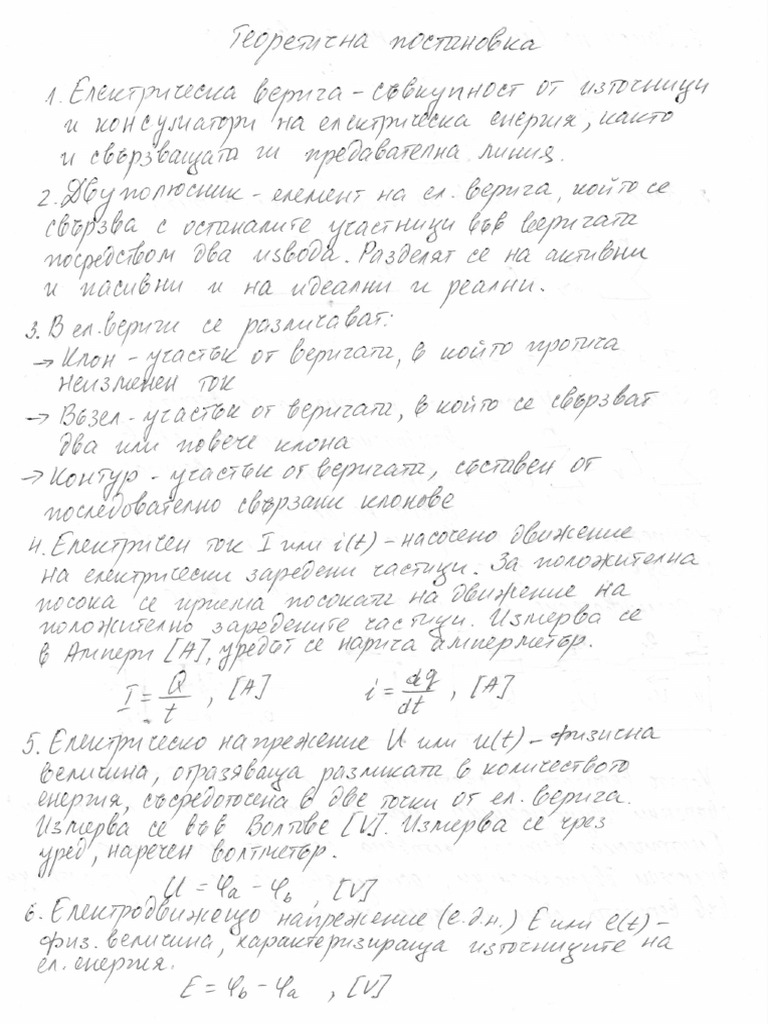 Теоретична постановка
1. Електрическа верига - съвкупност от източници
и консуматори на електрическа енергия, както
и свързващата ги предавателна линия.
2. Двуполюсник - елемент на ел. верига, който се
свързва с останалите участници във веригата
посредством два извода. Разделят се на активни
и пасивни и на идеални и реални.
3. В ел. вериги се различават:
→ Клон - участък от веригата, в който протича
неизменен ток
→ Възел - участък от веригата, в който се свързват
два или повече клона
→ Контур - участък от веригата, съставен от
последователно свързани клонове
4. Електричен ток I или i(t) - насочено движение
на електрически заредени частици. За положителна
посока се приема посоката на движение на
положително заредените частици. Измерва се
в Ампери [A], уредът се нарича амперметър.
I = Q/t , [A] i = dq/dt , [A]
5. Електрическо напрежение U или u(t) - физична
величина, отразяваща разликата в количеството
енергия, съсредоточена в две точки от ел. верига.
Измерва се във Волтове [V]. Измерва се чрез
уред, наречен волтметър.
U = φa - φb , [V]
6. Електродвижещо напрежение (е.д.н.) E или e(t) -
физ. величина, характеризираща източниците на
ел. енергия.
E = φb - φa , [V]